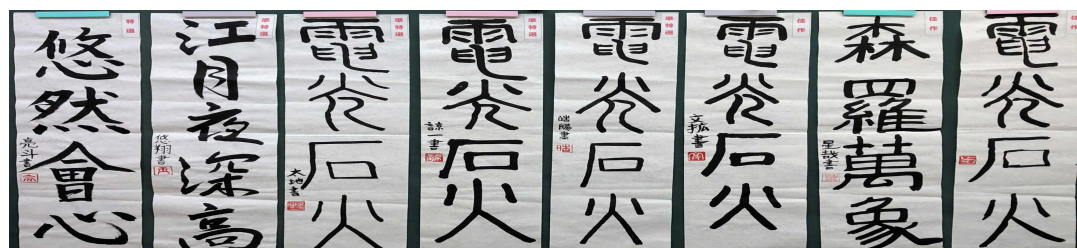 特選
悠然會心
亮斗書
準特選
江月夜深高
悠翔書
準特選
電光石火
太地書
準特選
電光石火
諒一書
準特選
電光石火
陽書
佳作
電光石火
文
書
佳作
森羅萬象
哉書
佳作
電光石火